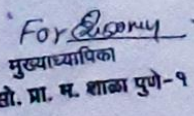 For
मुख्याध्यापिका
सो. प्रा. म. शाळा पुणे-१